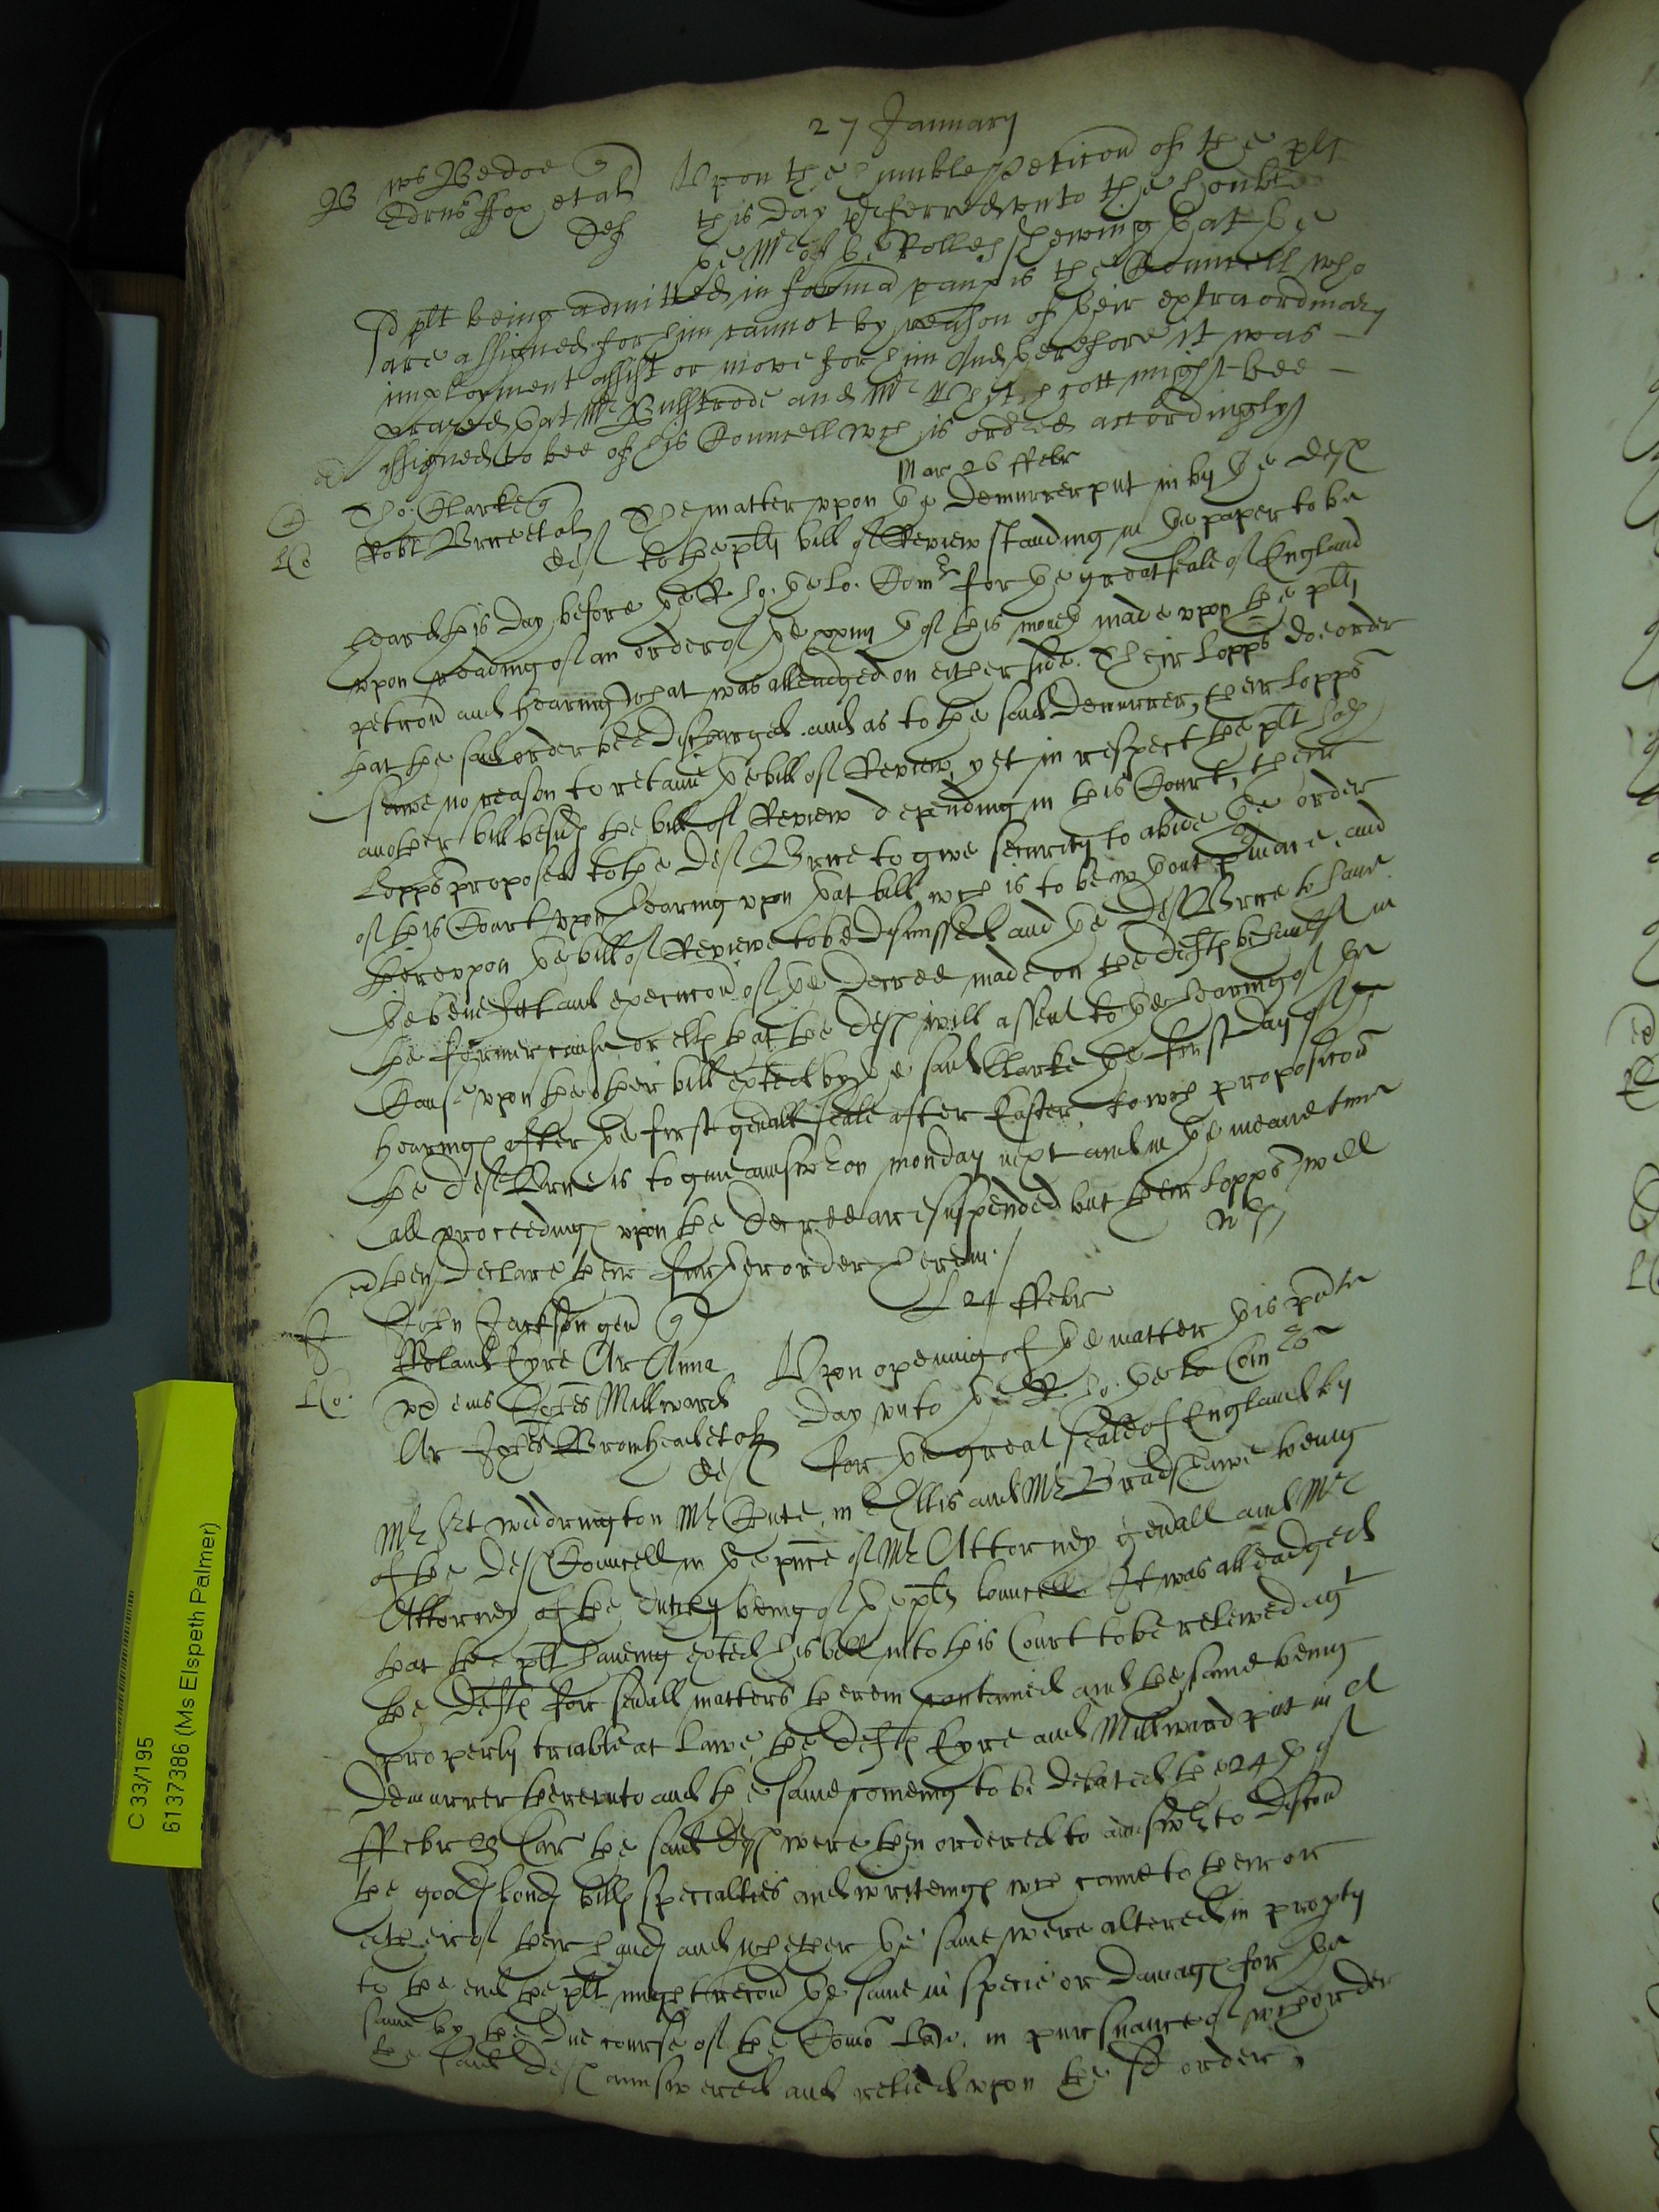 27 January
B ws Bedoe q
Edrus ffox et al
Def
Upon the humble peticon of the plt
this day pferred unto the honble
ye Mr of ye Rolles shewing yat ye
sd plt being admitted in forma paupis the Councell who
are assigned for him cannot by reason of yeir extraordinary
imployment assist or move for him And yerefore it was
prayed yat Mr Bulstrode and Mr might bee
assigned to bee of his Councell wch is ordred accordingly
Mar 26 ffebr
Tho: Clarke q
Robt Brree et al
def
The matter upon ye Demurrer put in by ye def
to the plts bill of Review standing in ye paper to be
heard this day before ye R ho: ye lo: Comrs for ye great seale of England
upon reading of an order of ye xxiiij th of this moneth made upon the plts
peticon and hearing what was alleadged on either side. Their Lopps doe order
that the said order bee discharged and as to the said Demurrer, their Lopps
sawe no reason to retaine ye bill of Review, yet in respect the plt hath
another bill besids the bill of Review depending in this Court, their
Lopps proposed to the def Brree to give security to abide ye order
of this Court upon hearing upon yat bill wch is to be wthout pjudice, and
thereupon ye bill of Reviewe to be dismissed and ye def Brree to have
ye benefitt and execucon of ye Decree made on the defts behalfe in
the former cause or ells that the def will assent to ye hearing of ye
Cause upon the other bill exted by ye said Clarke ye first day of ye
hearings after ye first genall seale after Easter, to wch proposicon
the def Brree is to give answr on monday next and in ye meane time
all proceedings upon the Decree are suspended but their Lopps will
then declare their further order herein.
L 21 ffebr
John Jackson gen q
Roland Eyre Ar Anna
Johes Millward
Ar Johes Bromhead et al
def
LCo:
Upon opening of ye matter this pnte
day unto ye R ho: ye lo Comrs
for ye great seale of England by
Mr Sit Widdrington Mr Chute, mr Ellis and Mr Bradshawe being
of the def Councell in ye pnce of Mr Attorney genall and Mr
Attorney of the dutchy being of ye plts Councell It was alleadged
that the plt haveing exted his bill into this Court to be releived agt
the defts for sevall matters therein conteined and the same being
properly triable at Lawe, the defts Eyre and Millward put in a
Demurrer thereunto and the same comeing to be debated the 24th of
ffebr 23 Car the said defs were then ordered to answr to discou
the goods bonds bills specialties and writeings wch came to their or
either of their hands and whether ye same were altered in propty
to the end the plt might recou ye same in specie or damags for ye
same by the due course of the Comon Law. in pursuance of wch order
the said defs answered and relied upon the sd order